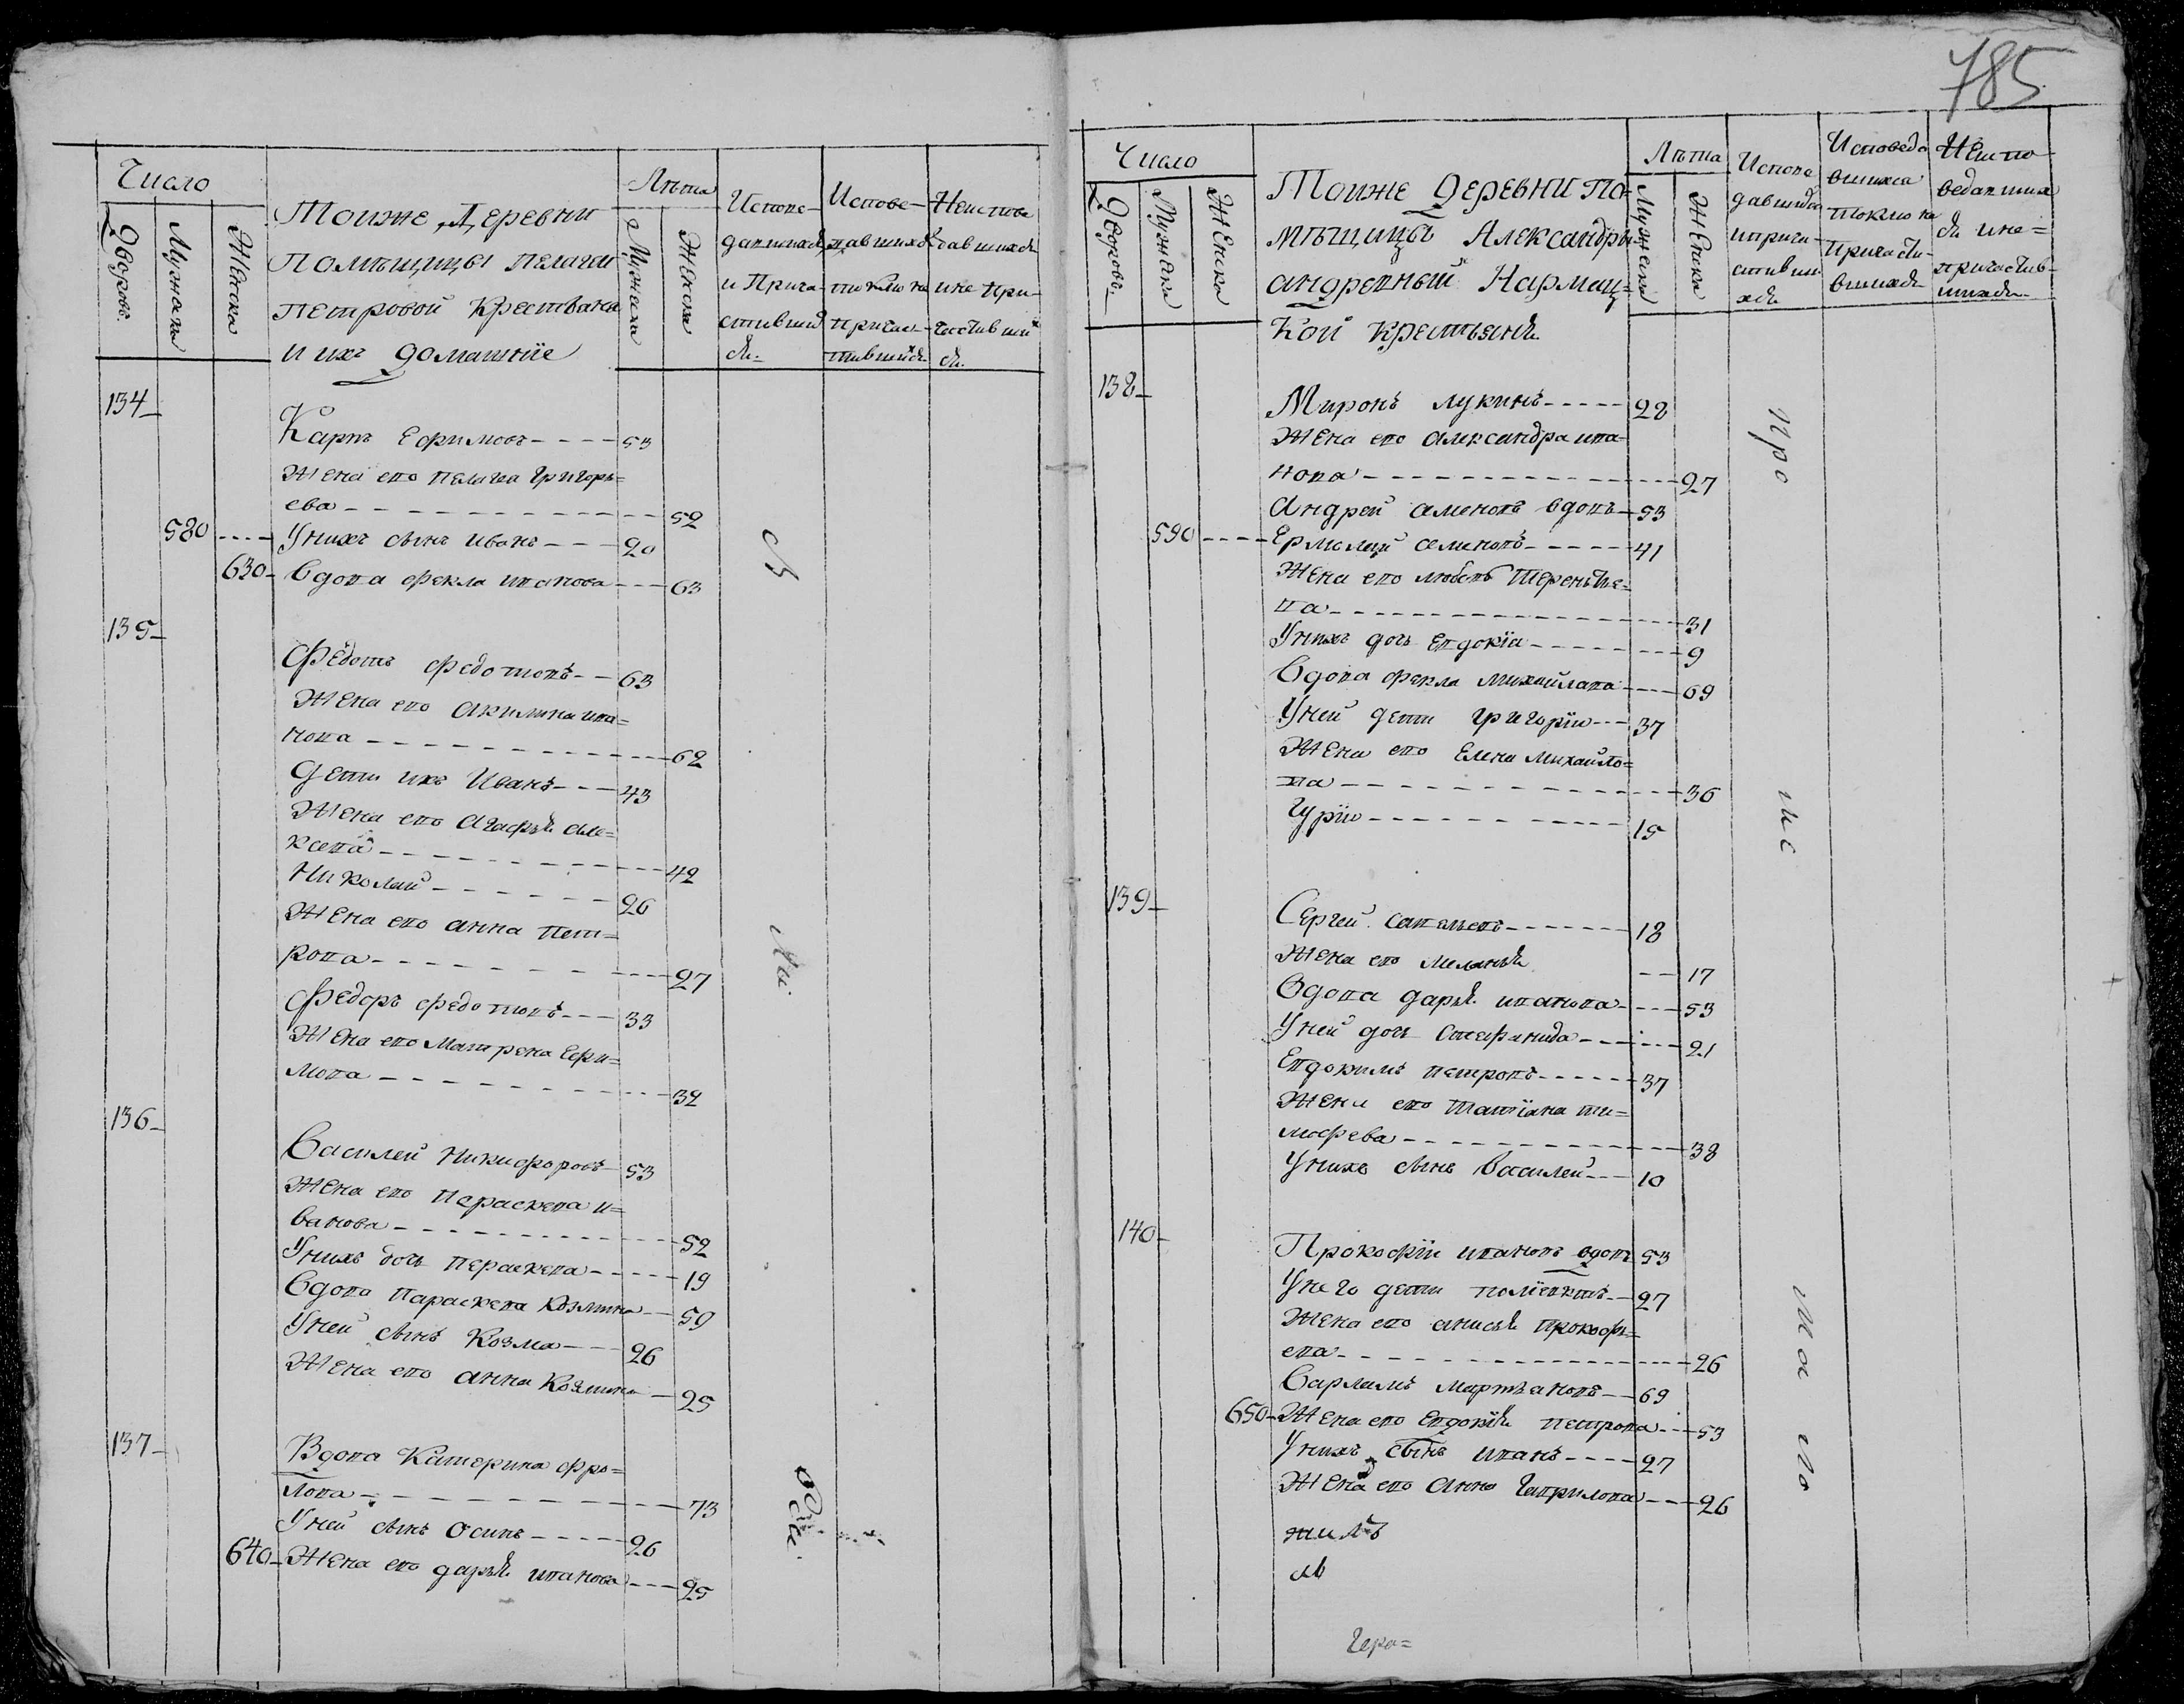 785
Число
Дворовъ
Мужеска
Женска
Тоиже Деревни
Помѣщицы Пелагеи
Петровой Крестьяня
и ихъ домашнїе
Лѣта
Мужеска
Женска
Испове-
давшихся
и Прича-
стивших
ся
Испове-
давшихся
токмо не
причас-
тившихся
Неиспове
давшихся
и не при-
частивших
ся
134
Карпъ Ефимовъ 53
Жена ево Пелагея Григорь=
ева 52
580 У нихъ сынъ Иванъ 20
630 Вдова Фекла Иванова 63
135
Федотъ Федотовъ 63
Жена ево Акилина Ива=
нова 62
дети ихъ Иванъ 43
Жена ево Агафья Але=
ксева 42
Николай 26
Жена ево Анна Пет=
рова 27
Федоръ Федотовъ 33
Жена ево Матрена Ефи=
мова 32
136
Василей Никифоровъ 53
Жена ево Параскева И=
ванова 52
У нихъ дочь Параскева 19
Вдова Параскева Козмина 59
У ней сынъ Козма 26
Жена ево Анна Козмина 25
137
Вдова Катерина Фро=
лова 73
У ней сынъ Осипъ 26
640 Жена ево дарья Иванова 25
Число
Дворовъ
Мужеска
Женска
Тоиже деревни По-
мѣщицы Александры
Андревный Нармац=
кой крестьяня
Лѣта
Мужеска
Женска
Испове
давшихся
и прича-
стивши
хся
Исповеда
вшихся
токмо не
причасти-
вшихся
Неиспо-
ведавших
ся и не=
причастив-
шихся
138
Миронъ Лукинъ 28
Жена ево Александра Ива=
нова 27
Андрей Семеновъ вдовъ 53
590 Ермолай Семеновъ 41
Жена ево Любовь Теренъте=
ва 31
У нихъ дочь Евдокїя 9
Вдова Фекла Михайлава 69
У ней дети Григорїи 37
Жена ево Елена Михайло=
ва 36
Гурїи 15
139
Сергей Савельевъ 18
Жена ево Меланья 17
Вдова дарья Иванова 53
У ней дочь Стефанида 21
Евдокимъ Петровъ 37
Жена ево Татїана Ти=
мофева 38
У нихъ сынъ Василей 10
140
Прокофїи Ивановъ вдовъ 53
У него дети Полїевктъ 27
Жена ево Анисья Прокофь=
ева 26
Варламъ Мартьяновъ 69
650 Жена ево Евдокїя Петрова 53
У нихъ сынъ Иванъ 27
Жена ево Анна Гаврилова 26
Гера=